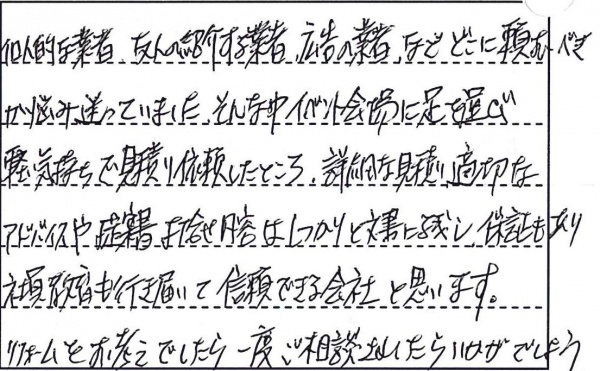 個人的な業者、友人の紹介する業者、広告の業者、などどこに頼むべき
か悩み、迷っていました。そんな中イベント会場に足を運び
軽い気持ちで見積り依頼したところ、詳細な見積り、適切な
アドバイスや提案書 打合せ内容はしっかりと文書に残し、保証もあり
社員教育も行き届いて信頼できる会社と思います。
リフォームをお考えでしたら一度ご相談されたらいかがでしょう